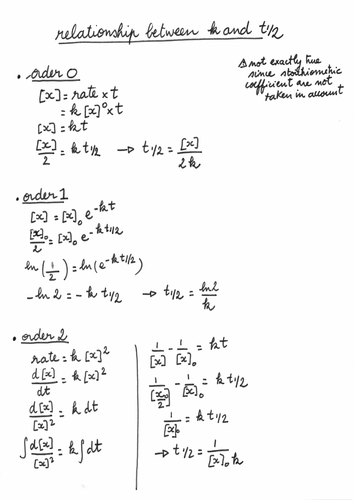 relationship between k and t1/2
⚠ not exactly true
since stoichiometric
coefficient are not
taken in account
• order 0
[x] = rate × t
= k [x]⁰ × t
[x] = kt
[x]/2 = k t1/2 → t1/2 = [x]/2k
• order 1
[x] = [x]₀ e^-kt
[x]₀/2 = [x]₀ e^-kt1/2
ln(1/2) = ln(e^-kt1/2)
-ln 2 = -k t1/2 → t1/2 = ln2/k
• order 2
rate = k [x]²
d[x]/dt = k [x]²
d[x]/[x]² = k dt
∫ d[x]/[x]² = k ∫ dt
1/[x] - 1/[x]₀ = kt
1/[x₀/2] - 1/[x]₀ = k t1/2
1/[x]₀ = k t1/2
→ t1/2 = 1/[x]₀ k